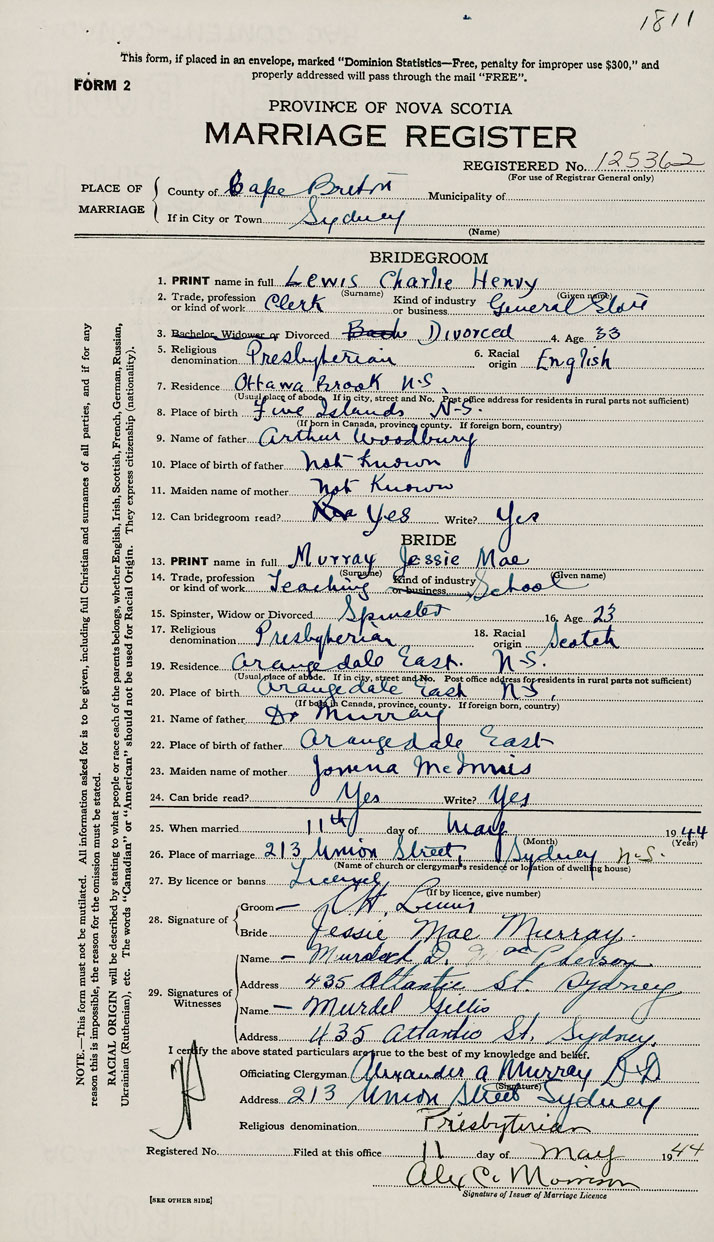 1811
This form, if placed in an envelope, marked "Dominion Statistics—Free, penalty for improper use $300," and
properly addressed will pass through the mail "FREE".
FORM 2
PROVINCE OF NOVA SCOTIA
MARRIAGE REGISTER
REGISTERED No. 125362
(For use of Registrar General only)
PLACE OF MARRIAGE
County of Cape Breton Municipality of
If in City or Town Sydney
(Name)
BRIDEGROOM
1. PRINT name in full Lewis Charlie Henry
(Surname) (Given name)
2. Trade, profession or kind of work Clerk Kind of industry or business General Store
3. Bachelor, Widower or Divorced Bach Divorced 4. Age 33
5. Religious denomination Presbyterian 6. Racial origin English
7. Residence Ottawa Brook N.S.
(Usual place of abode. If in city, street and No. Post office address for residents in rural parts not sufficient)
8. Place of birth Five Islands N.S.
(If born in Canada, province, county. If foreign born, country)
9. Name of father Arthur Woodbury
10. Place of birth of father Not Known
11. Maiden name of mother Not Known
12. Can bridegroom read? Yes Write? Yes
BRIDE
13. PRINT name in full Murray Jessie Mae
(Surname) (Given name)
14. Trade, profession or kind of work Teaching Kind of industry or business School
15. Spinster, Widow or Divorced Spinster 16. Age 23
17. Religious denomination Presbyterian 18. Racial origin Scotch
19. Residence Orangedale East. N.S.
(Usual place of abode. If in city, street and No. Post office address for residents in rural parts not sufficient)
20. Place of birth Orangedale East N.S.
(If born in Canada, province, county. If foreign born, country)
21. Name of father Murray
22. Place of birth of father Orangedale East
23. Maiden name of mother McInnis
24. Can bride read? Yes Write? Yes
25. When married 11th day of May 1944
(Month) (Year)
26. Place of marriage 213 Union Street, Sydney N.S.
(Name of church or clergyman's residence or location of dwelling house)
27. By licence or banns License
(If by licence, give number)
28. Signature of
Groom — C H. Lewis
Bride Jessie Mae Murray.
29. Signatures of Witnesses
Name — Murdoch D. McPherson
Address 435 Atlantic St. Sydney
Name — Murdel Gillis
Address 435 Atlantic St. Sydney.
I certify the above stated particulars are true to the best of my knowledge and belief.
Officiating Clergyman Alexander A Murray D D
(Signature)
Address 213 Union Street Sydney
Religious denomination Presbyterian
Registered No. Filed at this office 11 day of May 1944
Alex C. Morrison
Signature of Issuer of Marriage Licence
[SEE OTHER SIDE]
NOTE.—This form must not be mutilated. All information asked for is to be given, including full Christian and surnames of all parties, and if for any
reason this is impossible, the reason for the omission must be stated.
RACIAL ORIGIN will be described by stating to what people or race each of the parents belongs, whether English, Irish, Scottish, French, German, Russian,
Ukrainian (Ruthenian), etc. The words "Canadian" or "American" should not be used for Racial Origin. They express citizenship (nationality).